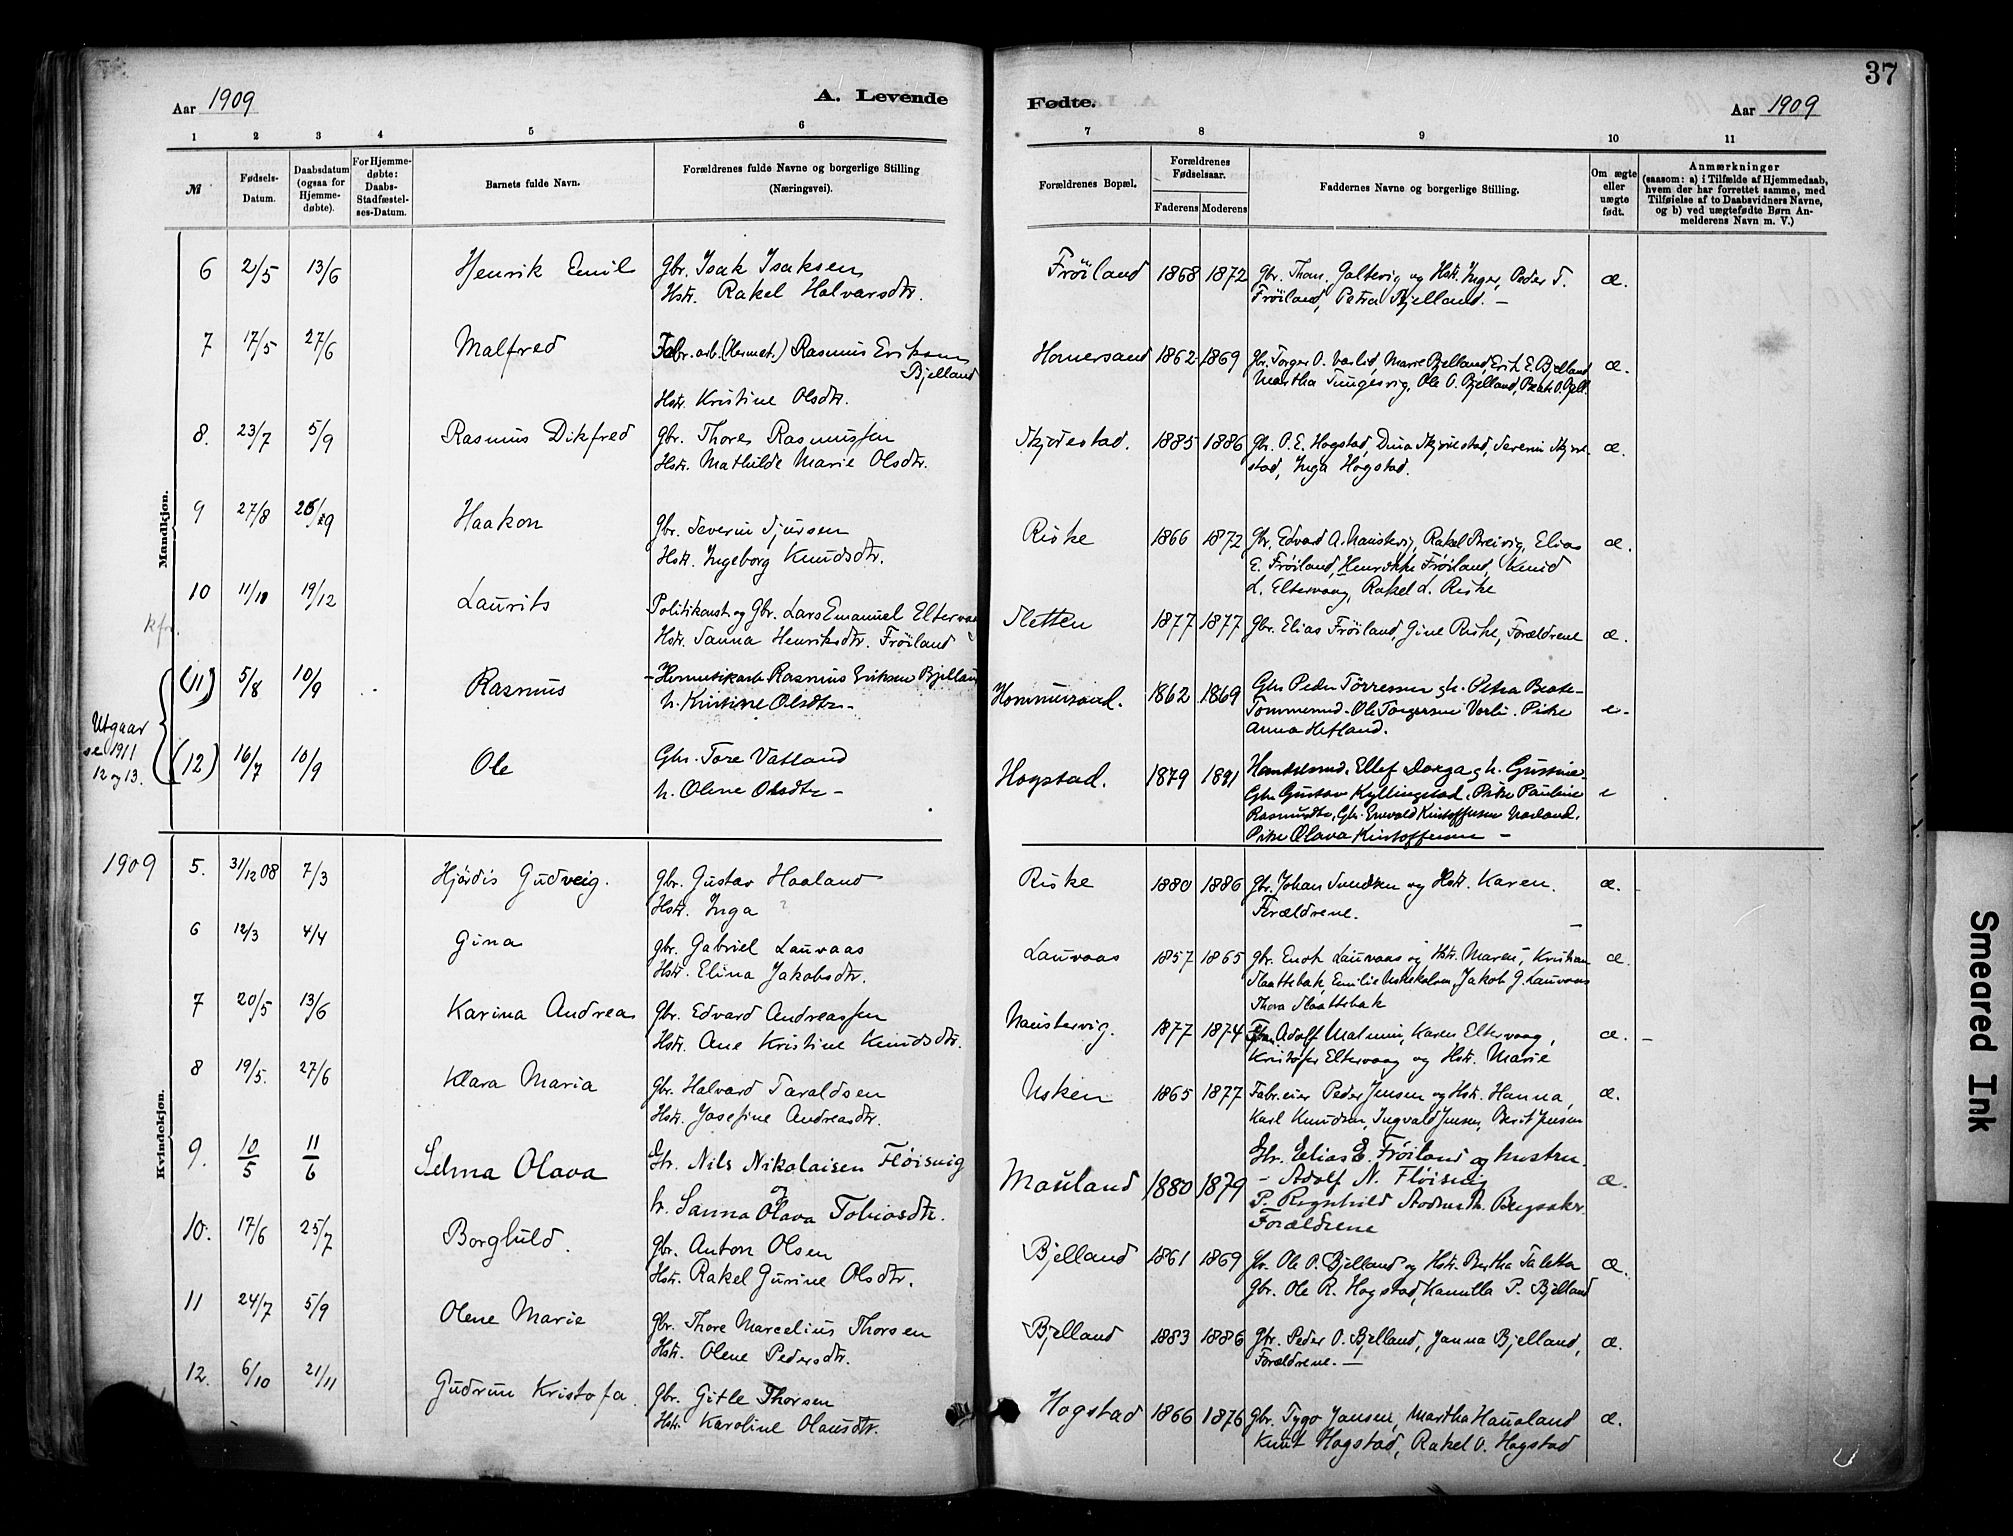 37
Aar 1909
A. Levende
Fødte.
Aar 1909
1 2 3 4 5 6 7 8 9 10 11
№
Fødsels-
Datum.
Daabsdatum
(ogsaa for
Hjemme-
døbte).
For Hjemme-
døbte:
Daabs-
Stadfæstel-
ses-Datum.
Barnets fulde Navn.
Forældrenes fulde Navne og borgerlige Stilling
(Næringsvei).
Forældrenes Bopæl.
Forældrenes
Fødselsaar.
Faderens Moderens
Faddernes Navne og borgerlige Stilling.
Om ægte
eller
uægte
født.
Anmærkninger
(saasom: a) i Tilfælde af Hjemmedaab,
hvem der har forrettet samme, med
Tilføielse af to Daabsvidners Navne,
og b) ved uægtefødte Børn An-
melderens Navn m. V.)
Mandkjøn.
6 2/5 13/6 Henrik Emil Gbr. Isak Isaksen Frøiland 1868 1872 Gbr. Thom. Galtevig og Hstr. Inger, Peder T. æ.
Hstr. Rakel Halvarsdtr. Frøiland, Petra Bjelland. –
7 17/5 27/6 Malfred Fabr. arb. (Hermet.) Rasmus Eriksen Homersand 1862 1869 Gbr. Torger O. Varlid, Marie Bjelland, Erik E. Bjelland æ.
Bjelland Martha Tungesvig, Ole O. Bjelland, Beate O. Bjell.
Hstr. Kristine Olsdtr.
8. 23/7 5/9 Rasmus Dikfred Gbr. Thores Rasmussen Skjørestad. 1885 1886 Gbr. O. E. Hogstad, Dina Skjørestad, Severin Skjøre- æ.
Hstr. Mathilde Marie Olsdtr. stad, Inga Hogstad.
9 27/8 Haakon Gbr. Severin Sjursen Riske 1866 1872 Gbr. Edvard A. Naustvig, Rakel Breivig, Elias æ.
Hstr. Ingeborg Knudsdtr. E. Frøiland, Henrikke Frøiland, Knud
L. Eltervaag, Rakel L. Riske
10 19/12 Laurits Politikonst og Gbr. Lars Emanuel Eltervaag Sletten 1877 1877 Gbr. Elias Frøiland, Gine Riske, Forældrene æ.
Hstr. Sanna Henriksdtr. Frøiland
kfr.
(11) 5/8 10/9 Rasmus Hermetikarb Rasmus Eriksen Bjelland Hommersand. 1862 1869 Gbr Peder Tørresen g h. Petra Beate- e-
h. Kristine Olsdtr- Tommesund. Ole Torgersen Varli. Pike
Anna Hetland.
Utgaar
se 1911
12 og 13.
(12) 16/7 10/9 Ole Gbr. Tore Vatland Hogstad. 1879 1891 Ellef Dorga g h. Gustine- e
h. Olene Olsdtr- Gbr Gustav Kyllingstad. Pike Pauline
Rasmusdtr. Gbr. Enevald Kristoffersen
Pike Olava Kristoffersen –
Kvindekjøn.
1909 5. 31/12 08 7/3 Hjørdis Gudveig. Gbr. Gustav Haaland Riske 1880 1886 Gbr. Johan Svendsen og Hstr. Karen. æ.
Hstr. Inga ? Forældrene.
6 12/3 4/4 Gina Gbr. Gabriel Lauvaas Lauvaas 1857 1865 Gbr. Enok Lauvaas og Hstr. Maren, Kristian æ.
Hstr. Elina Jakobsdtr. Slaattebak, Emilie Uskekalven, Jakob G. Lauvaas
Thora Slaattebak
7 20/5 13/6 Karina Andreas Gbr. Edvard Andreassen Naustervig. 1877 1874 Adolf Malmin, Karen Eltervaag, æ. –
Hstr. Ane Kristine Knudsdtr. Kristofer Eltervaag og Hstr. Marie
8 19/5. 27/6 Klara Maria Gbr. Halvard Taraldsen Usken 1865 1877 Fabr.eier Peder Jensen og Hstr. Hanna, æ.
Hstr. Josefine Andreasdtr. Karl Knudsen, Ingvald Jensen, Berit Jensen
9. 10/5 11/6 Selma Olava Gbr. Nils Nikolaisen Fløisvig Mauland 1880 1879 Gbr. Elias E. Frøiland og hustru. æ.
h. Sanna Olava Tobiasdtr. – Adolf N. Fløisvig
P. Ragnhild Bergsaker.
Forældrene
10. 17/6 25/7 Borghild. Gbr. Anton Olsen Bjelland 1861 1869 Gbr. Ole O. Bjelland og Hstr. Bertha Taletta æ.
Hstr. Rakel Gurine Olsdtr. Gbr. Ole R. Hogstad, Kamilla P. Bjelland
11 24/7 5/9 Olene Marie Gbr. Thore Marcelius Thorsen Bjelland 1883 1886 Gbr. Peder O. Bjelland, Janna Bjelland, æ.
Hstr. Olene Pedersdtr. Forældrene. –
12. 6/10 21/11 Gudrun Kristofa. Gbr. Gitle Thorsen Hogstad 1866 1876 Gbr. Tygo Jansen, Martha Haualand æ.
Hstr. Karoline Olausdtr. Knut Hogstad, Rakel O. Hogstad
Smeared Ink